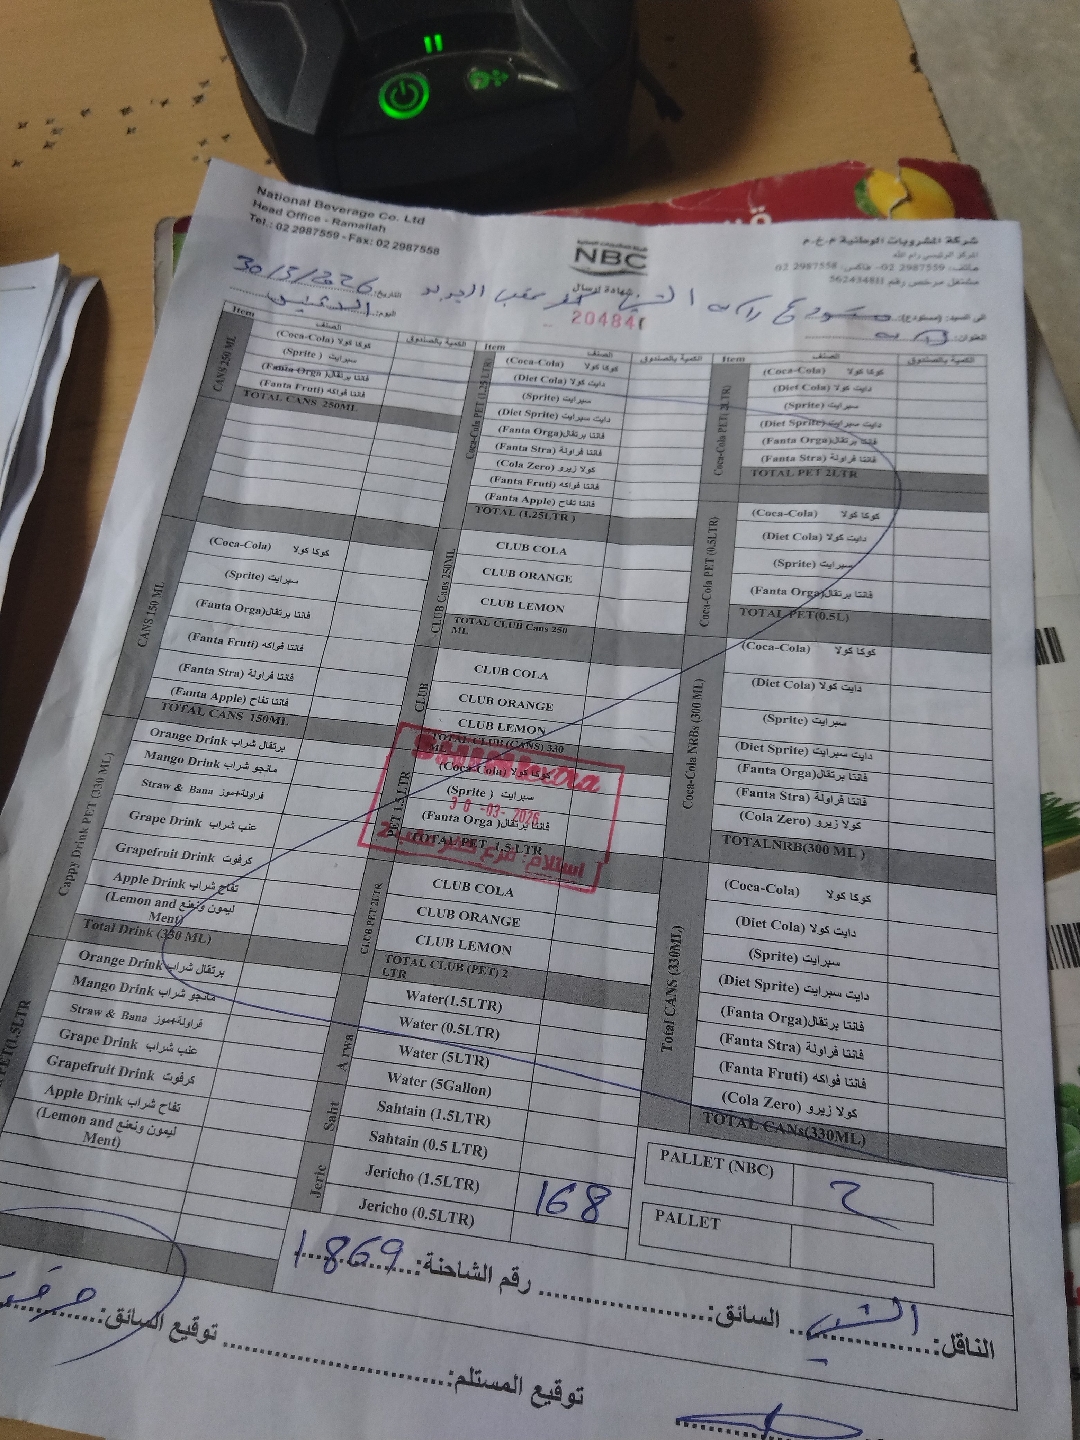 National Beverage Co. Ltd
Head Office - Ramallah
Tel.: 02 2987559 - Fax: 02 2987558
NBC
شركة المشروبات الوطنية م.خ.م
المركز الرئيسي رام الله
هاتف: 2987559 02- فاكس: 2987558 02
مشتغل مرخص رقم 562434811
شهادة إرسال
20484
الى السيد: (مستودع):
التاريخ: 30/3/2026
العنوان:
اليوم:
Item الصنف الكمية بالصندوق
CANS 250 ML
(Coca-Cola) كوكا كولا
(Sprite) سبرايت
(Fanta Orga) فانتا برتقال
(Fanta Fruti) فانتا فواكه
TOTAL CANS 250ML
CANS 150 ML
(Coca-Cola) كوكا كولا
(Sprite) سبرايت
(Fanta Orga) فانتا برتقال
(Fanta Fruti) فانتا فواكه
(Fanta Stra) فانتا فراولة
(Fanta Apple) فانتا تفاح
TOTAL CANS 150ML
Cappy Drink PET (330 ML)
Orange Drink برتقال شراب
Mango Drink مانجو شراب
Straw & Bana فراولة+موز
Grape Drink عنب شراب
Grapefruit Drink كرفوت
Apple Drink تفاح شراب
(Lemon and ليمون ونعنع
Ment)
Total Drink (330 ML)
PET(1.5LTR
Orange Drink برتقال شراب
Mango Drink مانجو شراب
Straw & Bana فراولة+موز
Grape Drink عنب شراب
Grapefruit Drink كرفوت
Apple Drink تفاح شراب
(Lemon and ليمون ونعنع
Ment)
Item الصنف الكمية بالصندوق
Coca-Cola PET (1.25 LTR)
(Coca-Cola) كوكا كولا
(Diet Cola) دايت كولا
(Sprite) سبرايت
(Diet Sprite) دايت سبرايت
(Fanta Orga) فانتا برتقال
(Fanta Stra) فانتا فراولة
(Cola Zero) كولا زيرو
(Fanta Fruti) فانتا فواكه
(Fanta Apple) فانتا تفاح
TOTAL (1.25LTR )
CLUB Cans 250ML
CLUB COLA
CLUB ORANGE
CLUB LEMON
TOTAL CLUB Cans 250
ML
CLUB
CLUB COLA
CLUB ORANGE
CLUB LEMON
TOTAL CLUB (CANS) 330
ML
PET 1.5 LTR
(Coca-Cola) كوكا كولا
(Sprite) سبرايت
(Fanta Orga) فانتا برتقال
TOTAL PET 1.5 LTR
30 -03- 2026
CLUB PET 2LTR
CLUB COLA
CLUB ORANGE
CLUB LEMON
TOTAL CLUB (PET) 2
LTR
A rwa
Water(1.5LTR)
Water (0.5LTR)
Water (5LTR)
Water (5Gallon)
Saht
Sahtain (1.5LTR)
Sahtain (0.5 LTR)
Jeric
Jericho (1.5LTR)
Jericho (0.5LTR)
168
Item الصنف الكمية بالصندوق
Coca-Cola PET( 2LTR)
(Coca-Cola) كوكا كولا
(Diet Cola) دايت كولا
(Sprite) سبرايت
(Diet Sprite) دايت سبرايت
(Fanta Orga) فانتا برتقال
(Fanta Stra) فانتا فراولة
TOTAL PET 2LTR
Coca-Cola PET (0.5LTR)
(Coca-Cola) كوكا كولا
(Diet Cola) دايت كولا
(Sprite) سبرايت
(Fanta Orga) فانتا برتقال
TOTAL PET(0.5L)
Coca-Cola NRBs (300 ML)
(Coca-Cola) كوكا كولا
(Diet Cola) دايت كولا
(Sprite) سبرايت
(Diet Sprite) دايت سبرايت
(Fanta Orga) فانتا برتقال
(Fanta Stra) فانتا فراولة
(Cola Zero) كولا زيرو
TOTALNRB(300 ML )
Total CANS (330ML)
(Coca-Cola) كوكا كولا
(Diet Cola) دايت كولا
(Sprite) سبرايت
(Diet Sprite) دايت سبرايت
(Fanta Orga) فانتا برتقال
(Fanta Stra) فانتا فراولة
(Fanta Fruti) فانتا فواكه
(Cola Zero) كولا زيرو
TOTAL CANs(330ML)
PALLET (NBC) 2
PALLET
الناقل: السائق: رقم الشاحنة: 1869
توقيع المستلم: توقيع السائق: